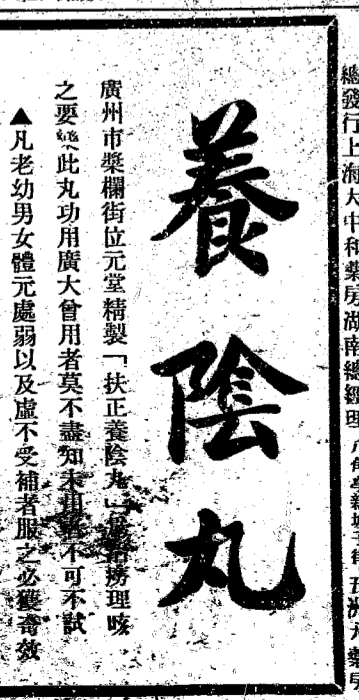 總發行上海大中和藥房湖南總經理
養陰丸
廣州市槳欄街位元堂精製「扶正養陰丸」治癆理咳
之要藥此丸功用廣大曾用者莫不盡知未用不可不試
▲凡老幼男女體元處弱以及虛不受補者服之必獲奇效